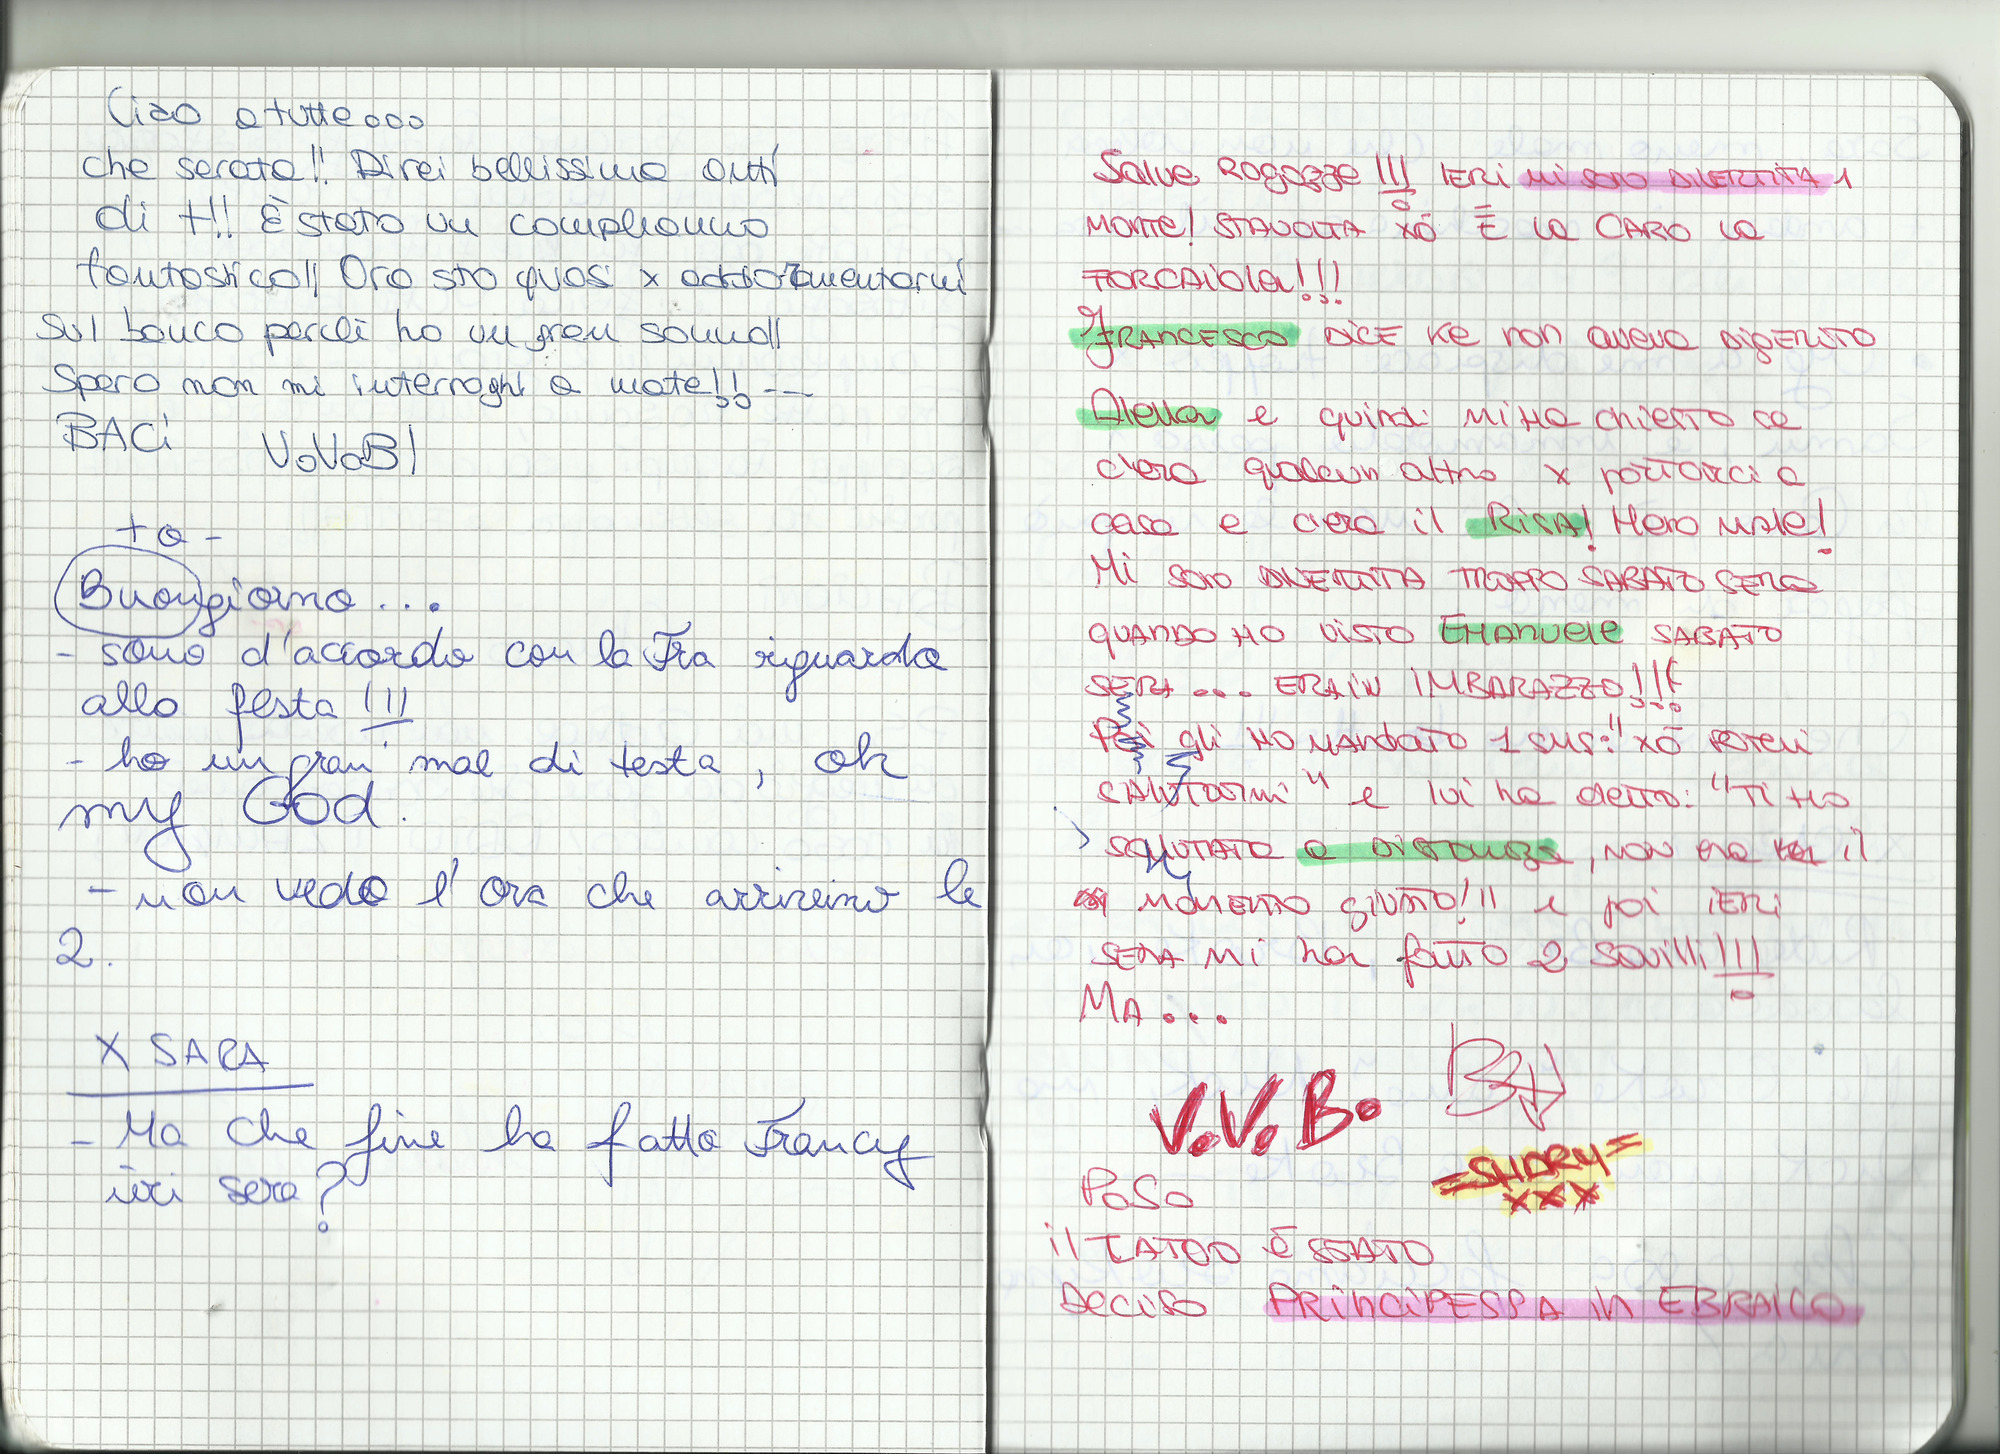 Ciao a tutte...
che serata!! Direi bellissima anzi
di +!! È stato un compleanno
fantastico!! Ora sto quasi x addormentarmi
sul banco perché ho un gran sonno!!
Spero non mi interroghi a mate!!
BACi V.V.B!
+ o -
Buongiorno...
- sono d'accordo con la Fra riguardo
alla festa!!!
- ho un gran mal di testa, oh
my God.
- non vedo l'ora che arrivino le
2.
X SARA
- Ma che fine ha fatto Francy
ieri sera?
Salve Ragazze!!! IERI Mi SONO DIVERTITA 1
MORTE! STAVOLTA XÒ È la CARO la
FORCAIOLA!!!
FRANCESCO DICE Ke non aveva DIGERITO
e quindi Mi HA chiesto se
c'era qualcun altro x portarci a
casa e c'era il RISA! Meno male!
Mi sono DIVERTITA TROPPO SABATO SERA
QUANDO HO VISTO EMANUELE SABATO
SERA... ERA IN IMBARAZZO!!!
Poi gli HO MANDATO 1 SMS: "XÒ POTEVI
SALUTARMI" e lui ha detto: "Ti HO
SALUTATA a DISTANZA, non era il
MOMENTO GIUSTO!" e poi IERI
SERA MI ha fatto 2 squilli!!!
MA...
V.V.B.
=SHARY=
XXX
P.S.
il TATOO È STATO
Deciso PRINCIPESSA IN EBRAICO